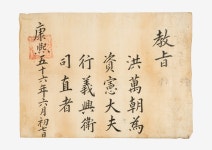 教旨
洪萬朝爲
資憲大夫
行義興衛
司直者
康熙五十六年六月初七日